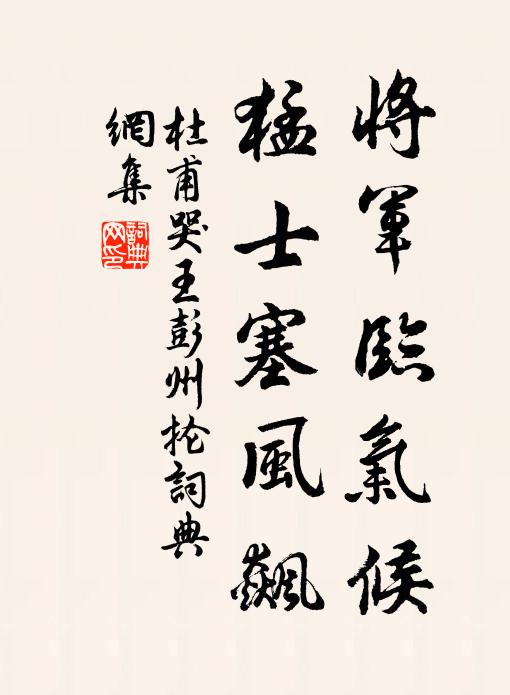 將軍臨氣候
猛士塞風飆
杜甫哭王彭州掄詞典
網集
詞典網印